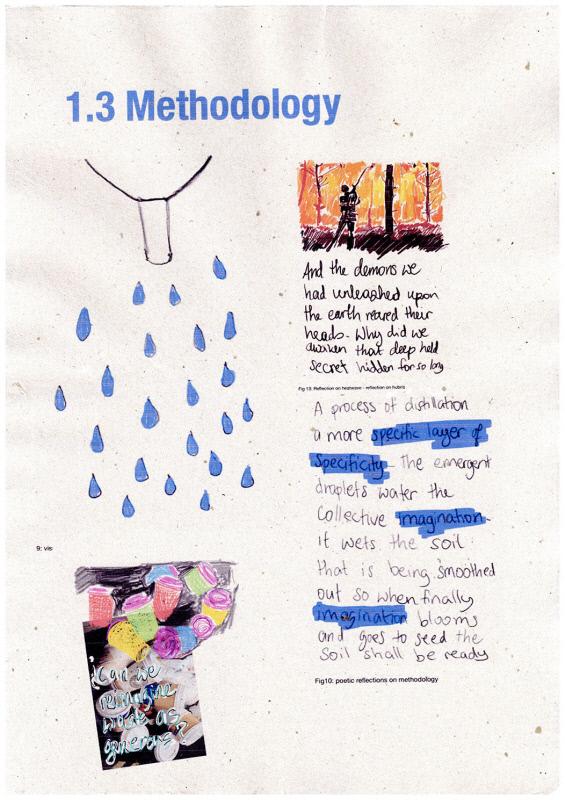 1.3 Methodology
And the demons we
had unleashed upon
the earth reared their
heads. Why did we
awaken that deep held
secret hidden for so long
Fig 13: Reflection on heatwave - reflection on hubris
A process of distillation
a more specific layer of
specificity the emergent
droplets water the
collective imagination.
it wets the soil
that is being smoothed
out so when finally
imagination blooms
and goes to seed the
soil shall be ready
Fig10: poetic reflections on methodology
9: vis
Can we
reimagine
waste as
generous?